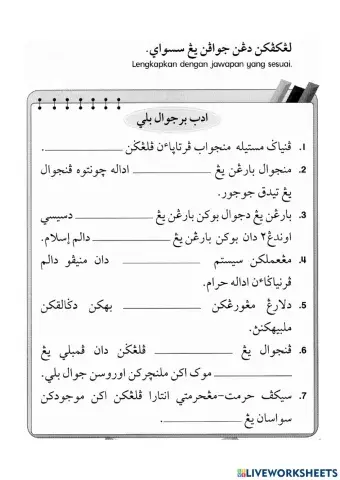 لڠکڤکن دڠن جواڤن يڠ سسواي.
Lengkapkan dengan jawapan yang sesuai.
ادب برجوال بلي
1. ڤنياݢ مستيله منجواب ڤرتاپاءن ڤلڠݢن ____________.
2. منجوال بارڠن يڠ ____________ اداله چونتوه ڤنجوال
يڠ تيدق جوجور.
3. بارڠن يڠ دجوال بوکن بارڠن يڠ ____________ دسيسي
اوندڠ٢ دان بوکن بارڠن يڠ ____________ دالم إسلام.
4. مڠعملکن سيستم ____________ دان منيڤو دالم
ڤرنياݢاءن اداله حرام.
5. دلارڠ مڠورڠکن ____________ بهکن دݢالقکن
ملبيهکنڽ.
6. ڤنجوال يڠ ____________ ڤلڠݢن دان ڤمبلي يڠ
____________ موک اکن ملنچرکن اوروسن جوال بلي.
7. سيکڤ حرمت-مڠحرمتي انتارا ڤلڠݢن اکن موجودکن
سواسان يڠ ____________.
LIVEWORKSHEETS